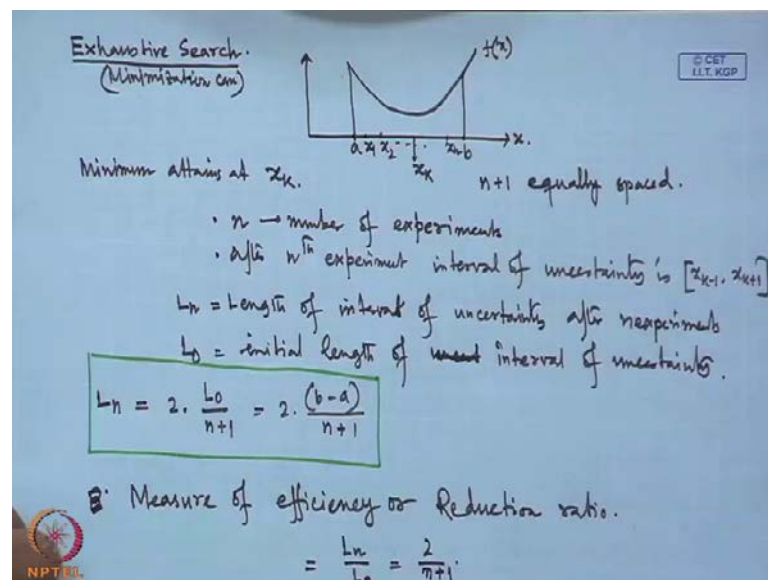 Exhaustive Search.
(Minimization case)
f(x)
© CET
I.I.T. KGP
a x₁ x₂ -- · · xₙ b x.
xₖ
Minimum attains at xₖ. n+1 equally spaced.
· n → number of experiments
· after nᵗʰ experiment interval of uncertainty is [xₖ₋₁, xₖ₊₁]
Lₙ = Length of interval of uncertainty after n experiments
L₀ = initial length of interval of uncertainty.
Lₙ = 2. L₀/(n+1) = 2. (b-a)/(n+1)
Measure of efficiency or Reduction ratio.
= Lₙ/L₀ = 2/(n+1).
NPTEL